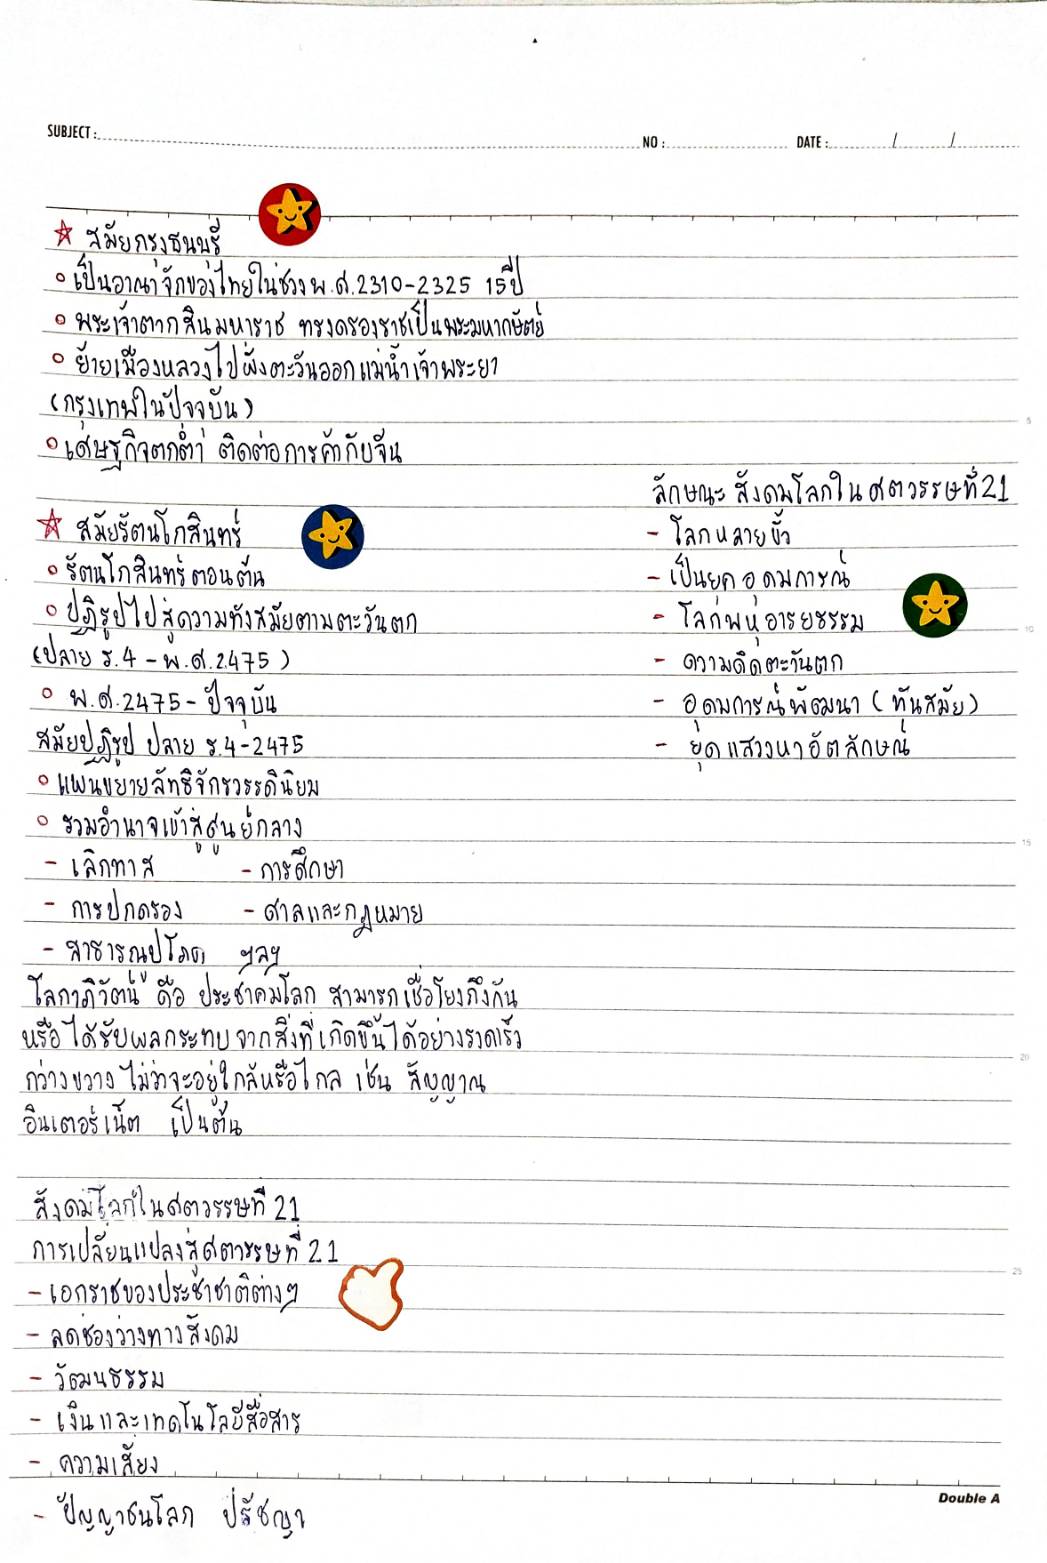 SUBJECT : NO : DATE : / /
☆ สมัยกรุงธนบุรี
เป็นอาณาจักรของไทยในช่วง พ.ศ.2310-2325 15ปี
พระเจ้าตากสินมหาราช ทรงครองราชเป็นพระมหากษัตย์
ย้ายเมืองหลวงไปฝั่งตะวันออกแม่น้ำเจ้าพระยา
(กรุงเทพในปัจจุบัน)
เศษฐกิจตกต่ำ ติดต่อการค้ากับจีน
☆ สมัยรัตนโกสินทร์
รัตนโกสินทร์ตอนต้น
ปฏิรูปไปสู่ความทังสมัยตามตะวันตก
(ปลาย ร.4 - พ.ศ.2475 )
พ.ศ.2475- ปัจจุบัน
สมัยปฏิรูป ปลาย ร.4-2475
แผนขยายลัทธิจักรวรรดินิยม
รวมอำนาจเข้าสู่ศูนย์กลาง
- เลิกทาส - การศึกษา
- การปกครอง - ศาลและกฎหมาย
- สาธารณูปโภค ฯลฯ
โลกาภิวัตน์ คือ ประชาคมโลก สามารถเชื่อโยงถึงกัน
หรือได้รับผลกระทบจากสิ่งที่เกิดขึ้นได้อย่างรวดเร็ว
กว่างขวาง ไม่ว่าจะอยู่ใกล้หรือไกล เช่น สัญญาณ
อินเตอร์เน็ต เป็นต้น
สังคมโลกในศตวรรษที่ 21
การเปลี่ยนแปลงสู่ศตวรรษที่ 21
- เอกราชของประชาชาติต่างๆ
- ลดช่องว่างทางสังคม
- วัฒนธรรม
- เงินและเทคโนโลยีสื่อสาร
- ความเสี่ยง
- ปัญญาชนโลก ปรัชญา
ลักษณะ สังคมโลกใน ศตวรรษที่ 21
- โลกหลายขั้ว
- เป็นยุคอุดมการณ์
- โลกพหุอารยธรรม
- ความคิดตะวันตก
- อุดมการณ์พัฒนา ( ทันสมัย)
- ยุคแสวงหาอัตลักษณ์
5
10
15
20
25
Double A